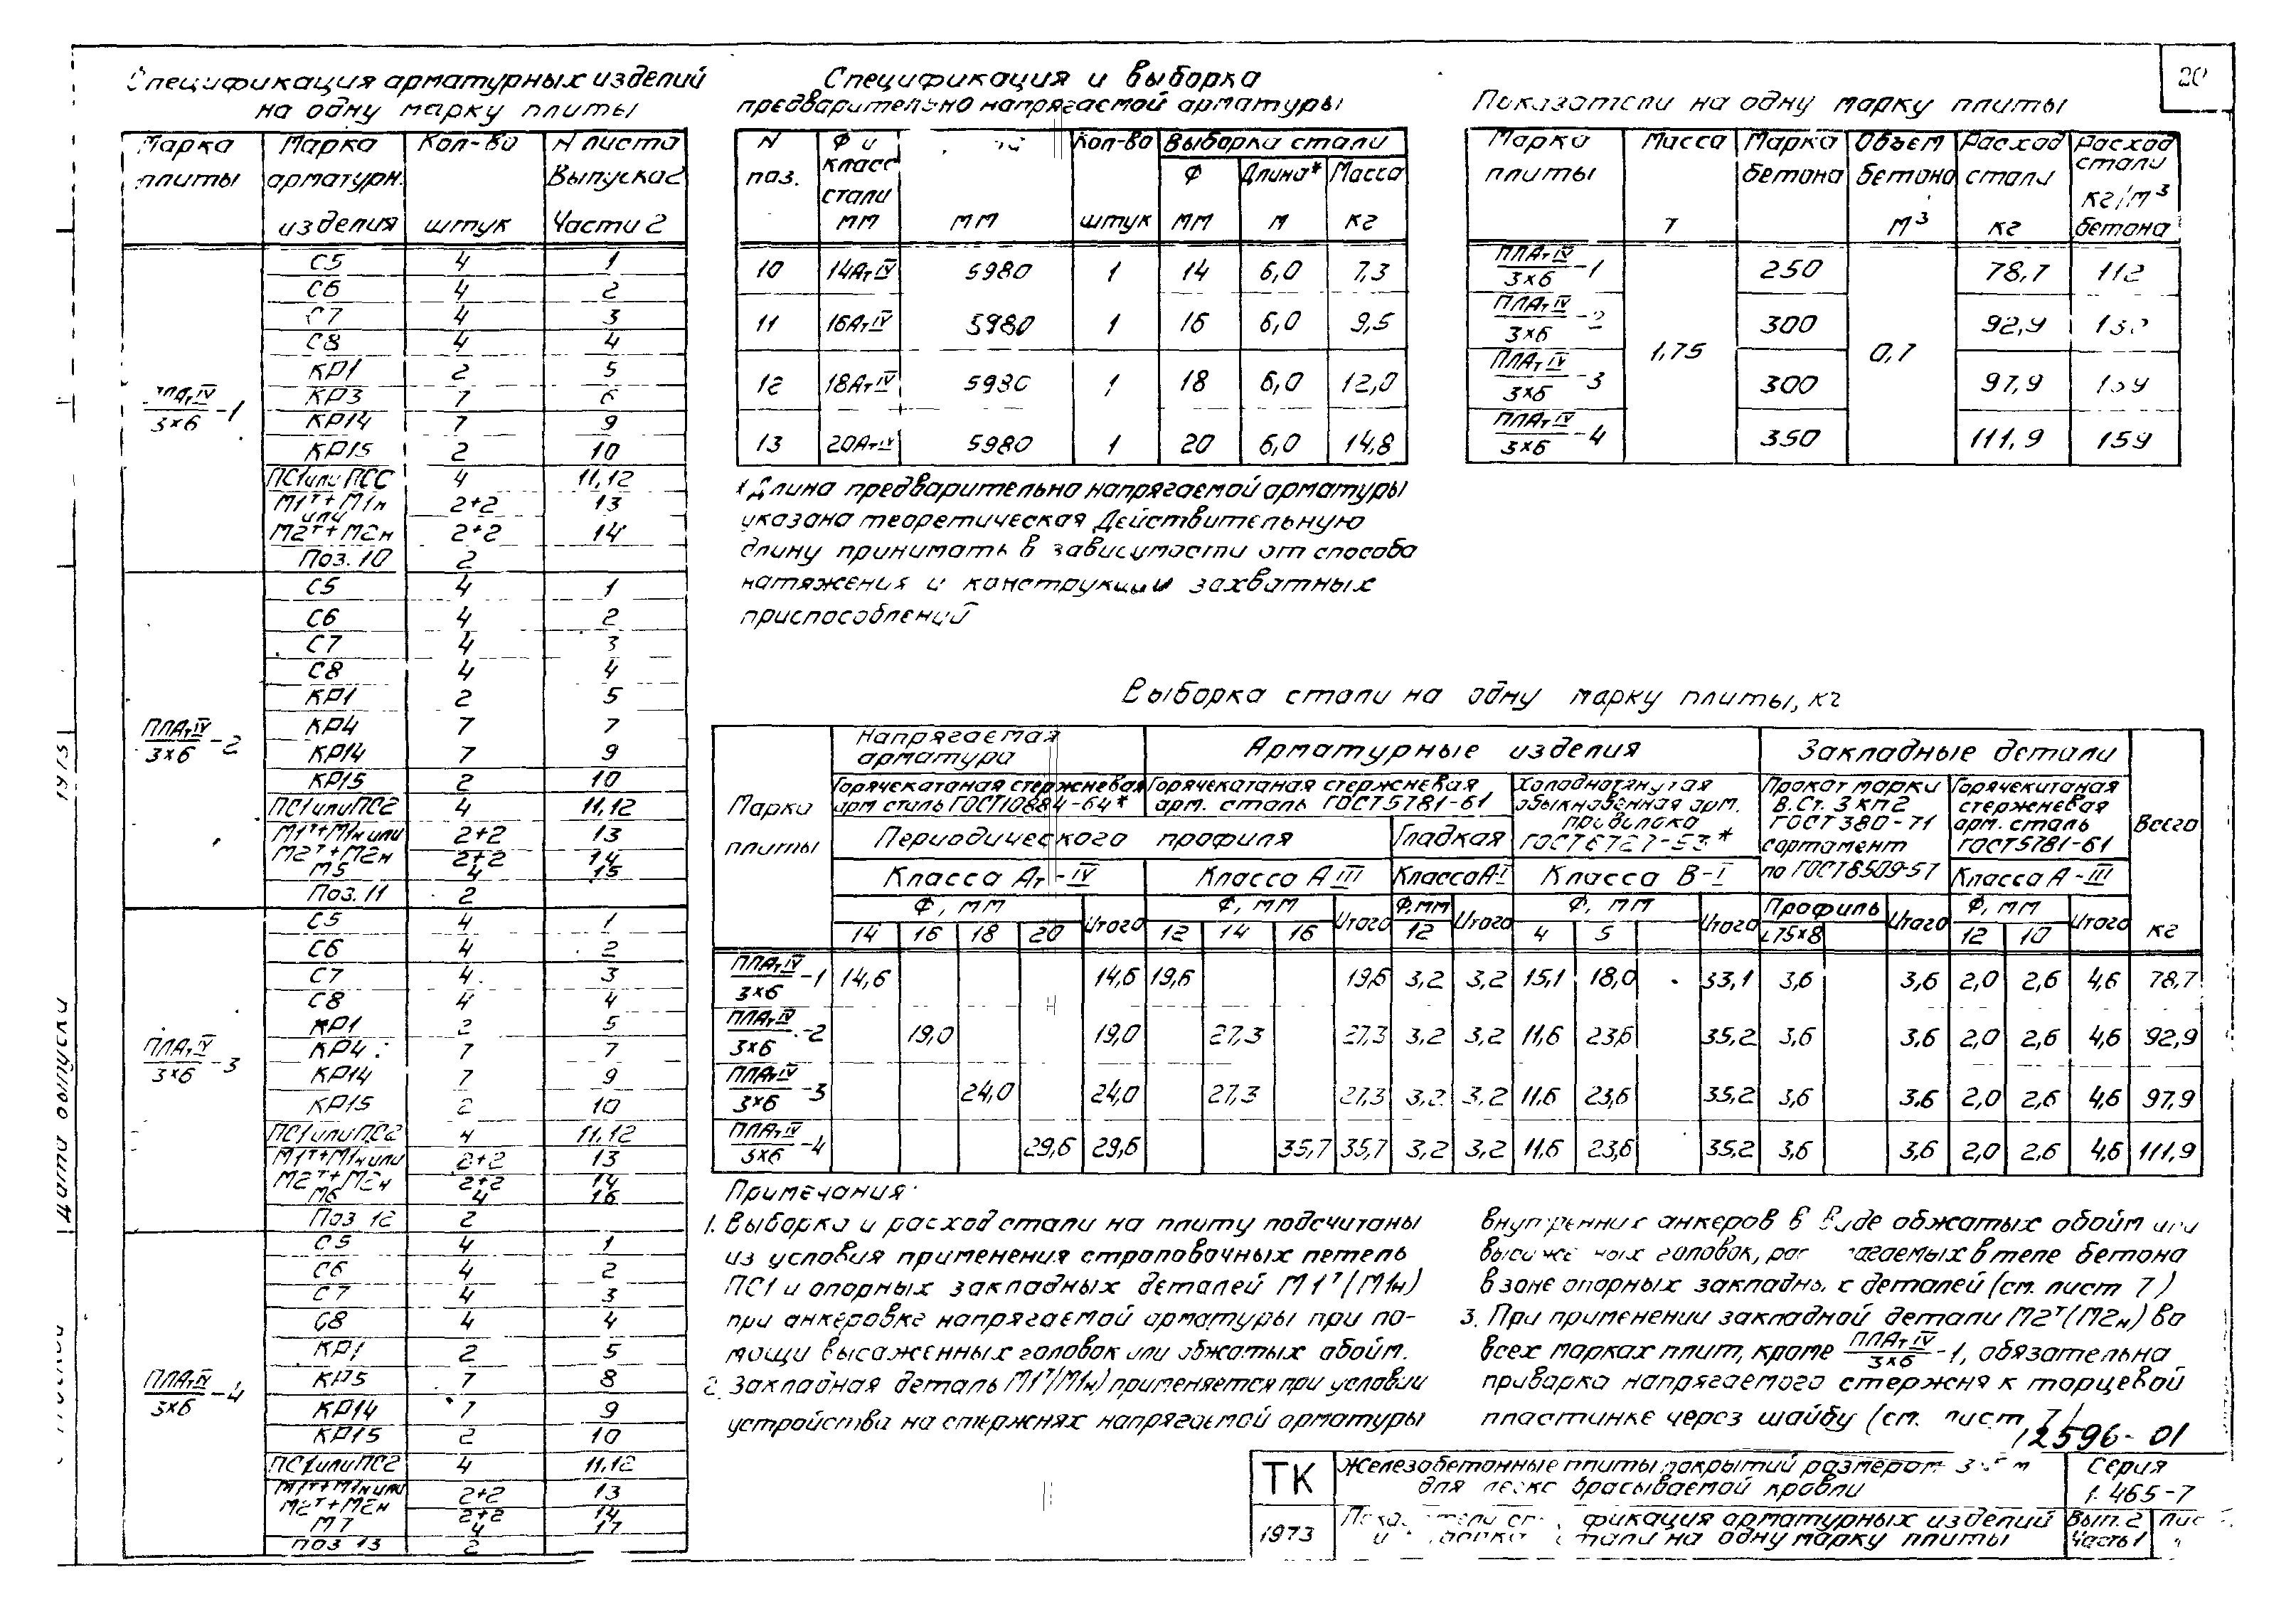 20
Спецификация арматурных изделий
на одну марку плиты
Марка плиты | Марка арматурн. изделия | Кол-во штук | N листа Выпуска 2 Части 2
ПЛАтIV/3×6 -1
С5 4 1
С6 4 2
С7 4 3
С8 4 4
КР1 2 5
КР3 7 6
КР14 7 9
КР15 2 10
ПС1 или ПСС 4 11,12
М1т+М1н 2+2 13
или
М2т+М2н 2+2 14
Поз. 10 2
ПЛАтIV/3×6 -2
С5 4 1
С6 4 2
С7 4 3
С8 4 4
КР1 2 5
КР4 7 7
КР14 7 9
КР15 2 10
ПС1 или ПС2 4 11,12
М1т+М1н или 2+2 13
М2т+М2н 2+2 14
М5 4 15
Поз. 11 2
ПЛАтIV/3×6 -3
С5 4 1
С6 4 2
С7 4 3
С8 4 4
КР1 2 5
КР4 7 7
КР14 7 9
КР15 2 10
ПС1 или ПС2 4 11,12
М1т+М1н или 2+2 13
М2т+М2н 2+2 14
М6 4 16
Поз 12 2
ПЛАтIV/3×6 -4
С5 4 1
С6 4 2
С7 4 3
С8 4 4
КР1 2 5
КР5 7 8
КР14 7 9
КР15 2 10
ПС1 или ПС2 4 11,12
М1т+М1н или 2+2 13
М2т+М2н 2+2 14
М7 4 17
поз 13 2
Спецификация и выборка
предварительно напрягаемой арматуры
N поз. | Ф и класс стали мм | мм | Кол-во штук | Выборка стали | Ф мм | Длина* м | Масса кг
10 14АтIV 5980 1 14 6,0 7,3
11 16АтIV 5980 1 16 6,0 9,5
12 18АтIV 5980 1 18 6,0 12,0
13 20АтIV 5980 1 20 6,0 14,8
* Длина предварительно напрягаемой арматуры
указана теоретическая Действительную
длину принимать в зависимости от способа
натяжения и конструкции захватных
приспособлений
Показатели на одну марку плиты
Марка плиты | Масса т | Марка бетона | Объем бетона м3 | Расход стали кг | Расход стали кг/м3 бетона
ПЛАтIV/3×6 -1 250 78,7 112
ПЛАтIV/3×6 -2 300 92,9
1,75 0,7
ПЛАтIV/3×6 -3 300 97,9
ПЛАтIV/3×6 -4 350 111,9 159
Выборка стали на одну марку плиты, кг
Марка плиты | Напрягаемая арматура | Арматурные изделия | Закладные детали | Всего кг
Горячекатаная стержневая арм сталь ГОСТ10884-64* | Горячекатаная стержневая арм. сталь ГОСТ 5781-61 | Холоднотянутая обыкновенная арм. проволока ГОСТ 6727-53* | Прокат марки В.Ст. 3 кп2 ГОСТ 380-71 сортамент по ГОСТ 8509-57 | Горячекатаная стержневая арм. сталь ГОСТ 5781-61
Периодического профиля | Гладкая
Класса Ат-IV | Класса А III | Класса А-I | Класса В-I | Класса А-III
Ф, мм | Итого | Ф, мм | Итого | Ф,мм | Итого | Ф, мм | Итого | Профиль | Итого | Ф, мм | Итого
14 16 18 20 12 14 16 12 4 5 L75×8 12 10
ПЛАтIV/3×6 -1 14,6 14,6 19,6 19,6 3,2 3,2 15,1 18,0 33,1 3,6 3,6 2,0 2,6 4,6 78,7
ПЛАтIV/3×6 -2 19,0 19,0 27,3 27,3 3,2 3,2 11,6 23,6 35,2 3,6 3,6 2,0 2,6 4,6 92,9
ПЛАтIV/3×6 -3 24,0 24,0 27,3 27,3 3,2 3,2 11,6 23,6 35,2 3,6 3,6 2,0 2,6 4,6 97,9
ПЛАтIV/3×6 -4 29,6 29,6 35,7 35,7 3,2 3,2 11,6 23,6 35,2 3,6 3,6 2,0 2,6 4,6 111,9
Примечания:
1. Выборка и расход стали на плиту подсчитаны
из условия применения строповочных петель
ПС1 и опорных закладных деталей М1т (М1н)
при анкеровке напрягаемой арматуры при по-
мощи высаженных головок или обжатых обойм.
2. Закладная деталь М1т(М1н) применяется при условии
устройства на стержнях напрягаемой арматуры
внутренних анкеров в виде обжатых обойм или
головок, в теле бетона
в зоне опорных закладных деталей (см. лист 7)
3. При применении закладной детали М2т (М2н) во
всех марках плит, кроме ПЛАтIV/3×6 -1, обязательна
приварка напрягаемого стержня к торцевой
пластинке через шайбу (см. лист 7)
12596-01
ТК
1973
Железобетонные плиты покрытий размером м
для брасываемой кровли
фикация арматурных изделий
и стали на одну марку плиты
Серия
1.465-7
Вып. 2
Часть 1
Дата выпуска
1973